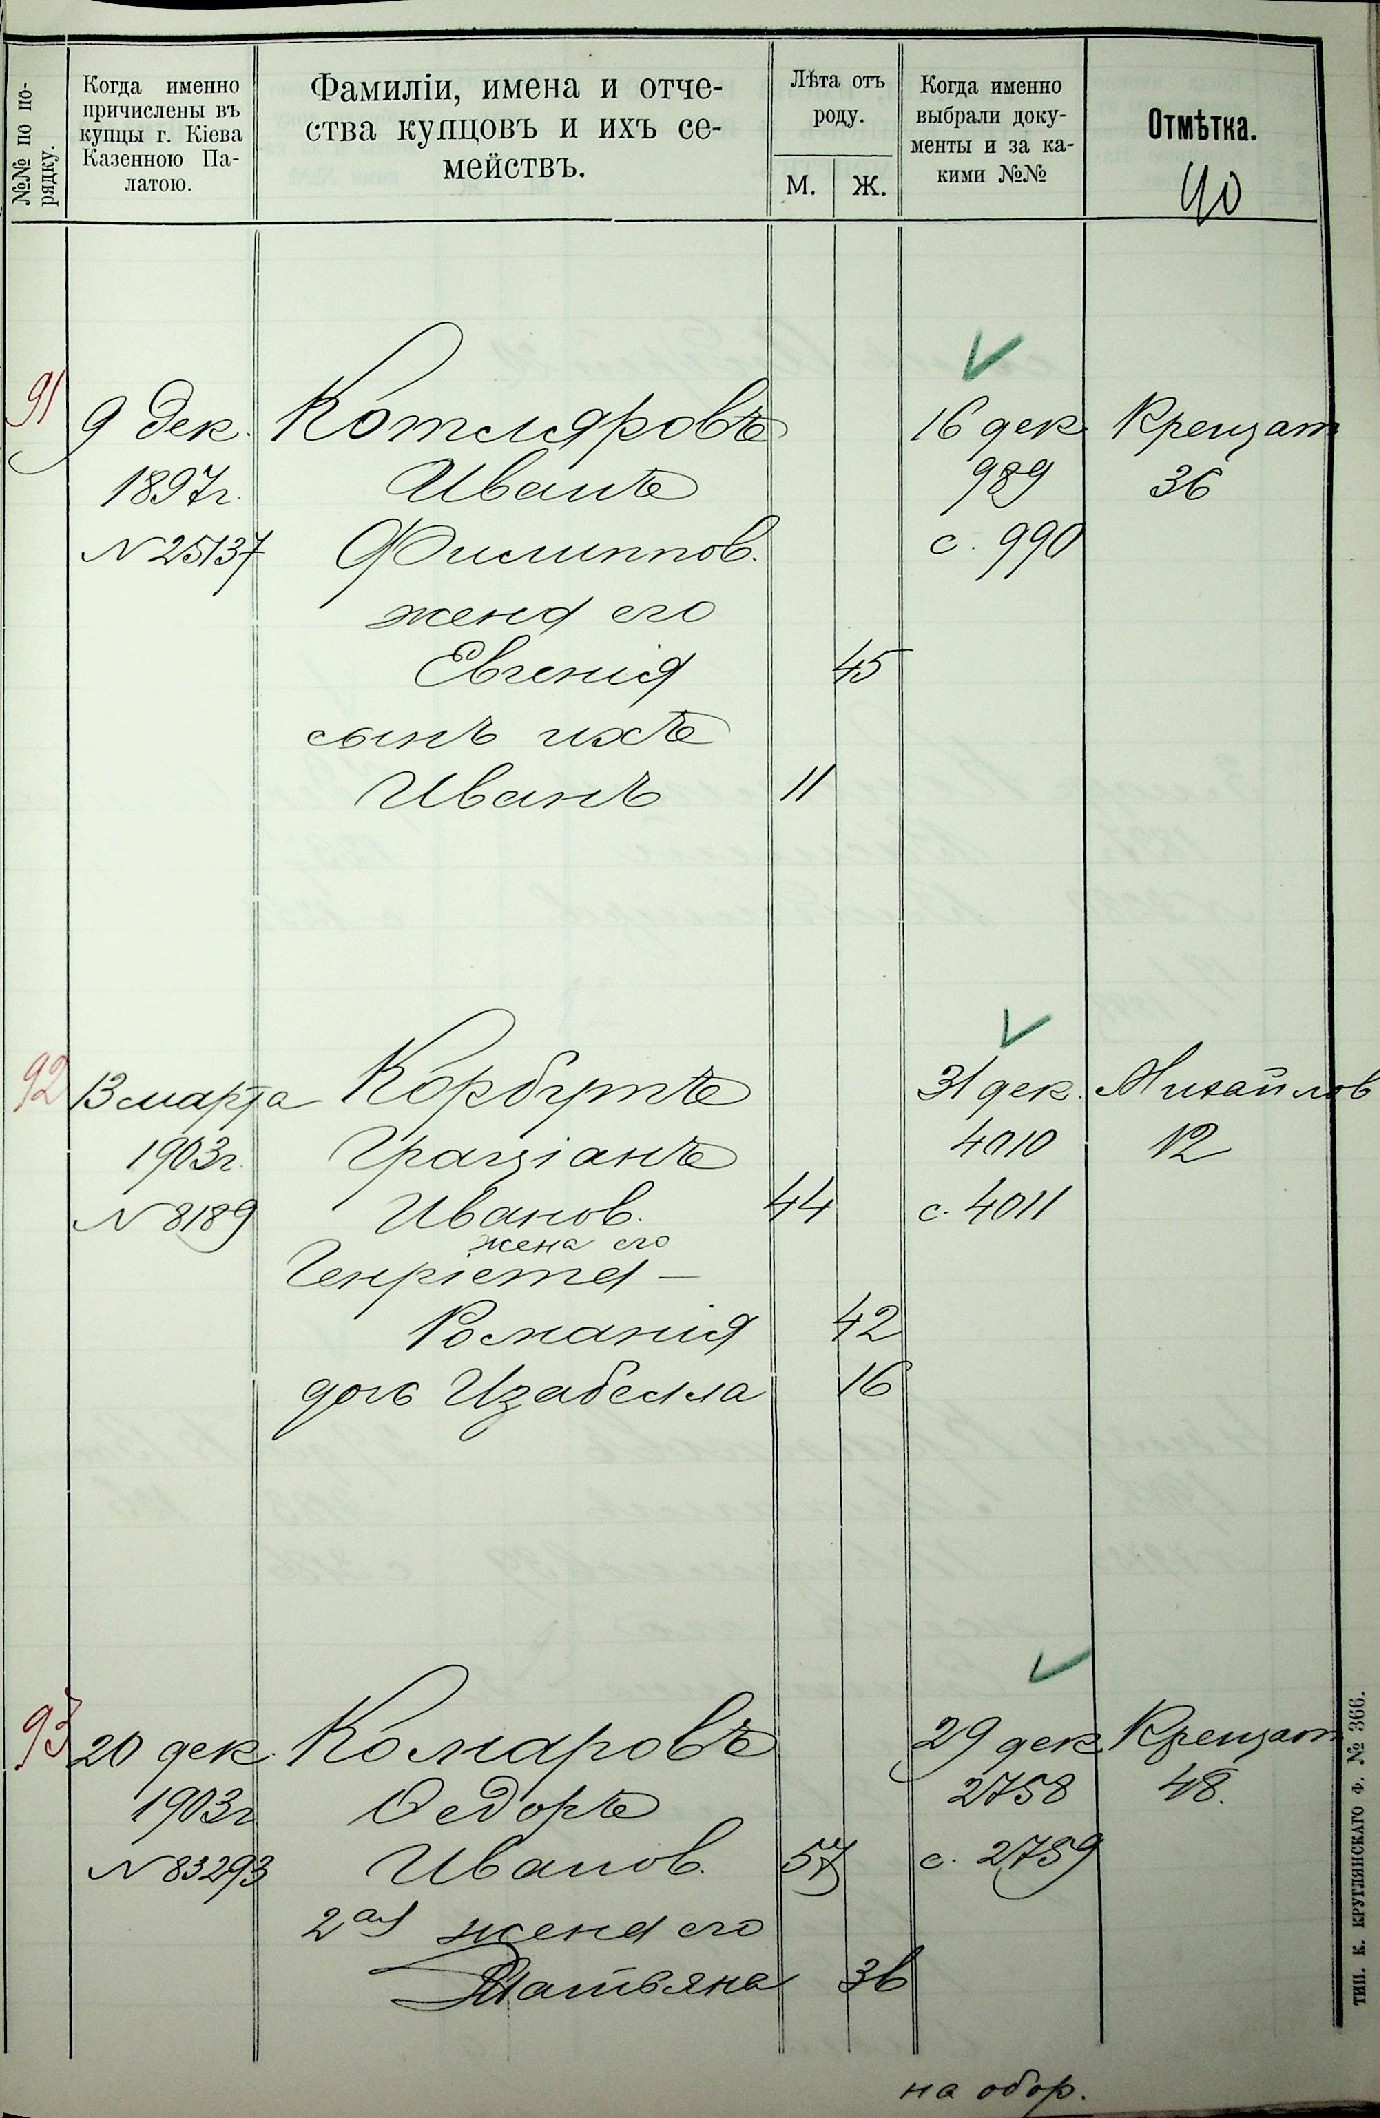 №№ по по-
рядку.
Когда именно
причислены въ
купцы г. Кіева
Казенною Па-
латою.
Фамиліи, имена и отче-
ства купцовъ и ихъ се-
мействъ.
Лѣта отъ
роду.
М. Ж.
Когда именно
выбрали доку-
менты и за ка-
кими №№
Отмѣтка.
40
91 9 дек. Котляровъ 16 дек. Крещат
1897г. Иванъ 989 36
N 25137 Филиппов. с. 990
жена его
Евгенія 45
сынъ ихъ
Иванъ 11
92 13 марта Корбутъ 31 дек. Михайлов
1903г. Граціанъ 4010 12
N 8189 Иванов. 44 с. 4011
жена его
Генріета —
Романія 42
дочь Изабелла 16
93 20 дек. Комаровъ 29 дек. Крещат
1903г. Ѳедоръ 2758 48.
N 83293 Иванов. 57 с. 2759
2ая жена его
Татьяна 36
на обор.
ТИП. К. КРУГЛЯНСКАГО Ф. № 366.